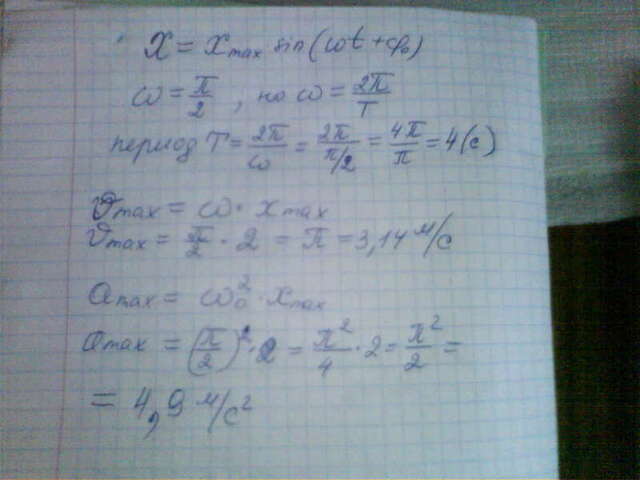 x = x max sin(ωt + φ₀)
ω = π/2 , но ω = 2π/T
период T = 2π/ω = 2π/π/2 = 4π/π = 4(с)
ϑmax = ω · xmax
ϑmax = π/2 · 2 = π = 3,14 м/с
amax = ω₀² · xmax
amax = (π/2)² · 2 = π²/4 · 2 = π²/2 =
= 4,9 м/с²